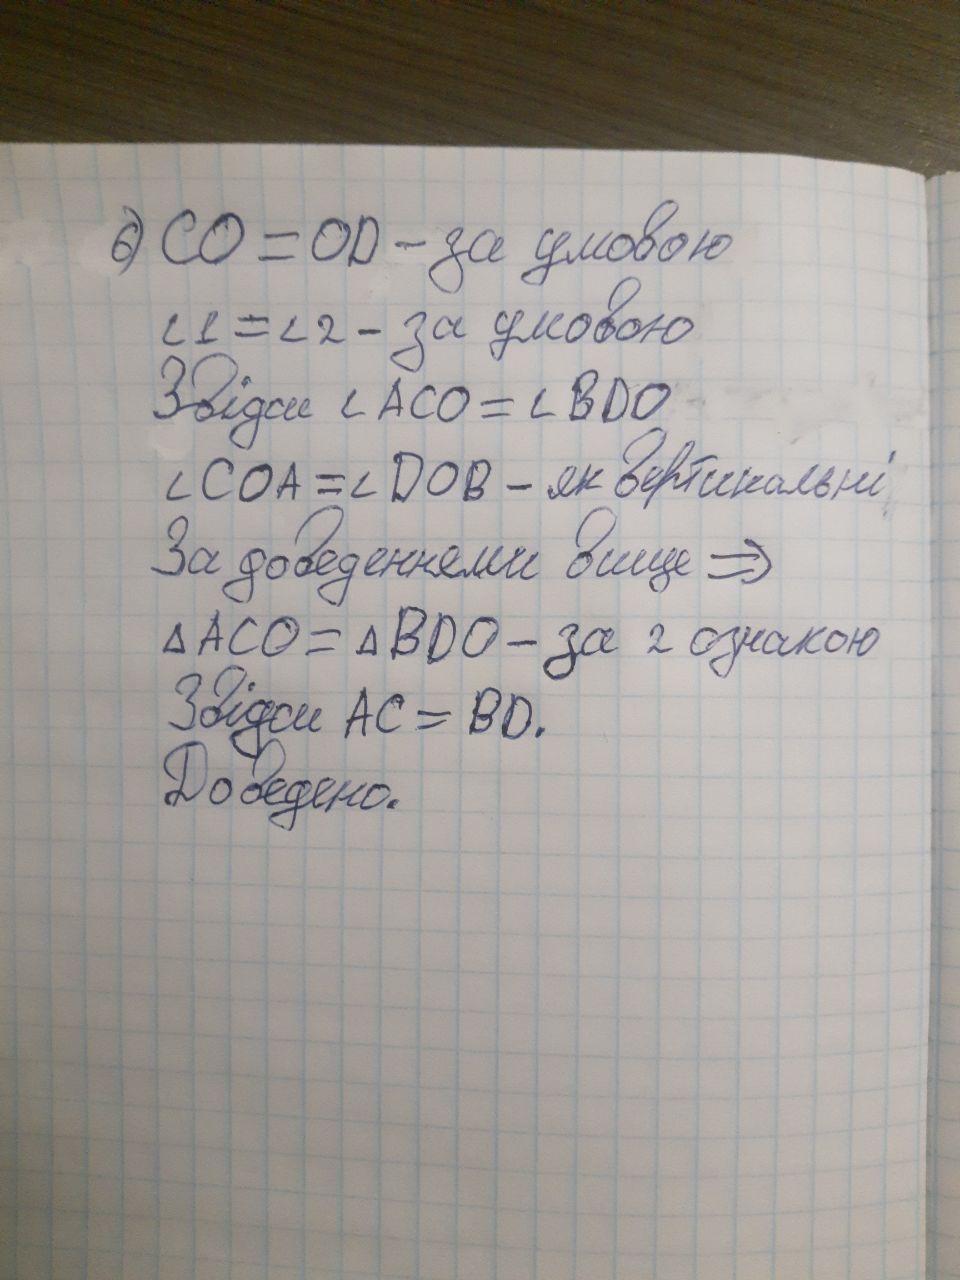 6) CO = OD - за умовою
∠1 = ∠2 - за умовою
Звідси ∠ACO = ∠BDO
∠COA = ∠DOB - як вертикальні
За доведеннями вище ⇒
△ACO = △BDO - за 2 ознакою
Звідси AC = BD.
Доведено.